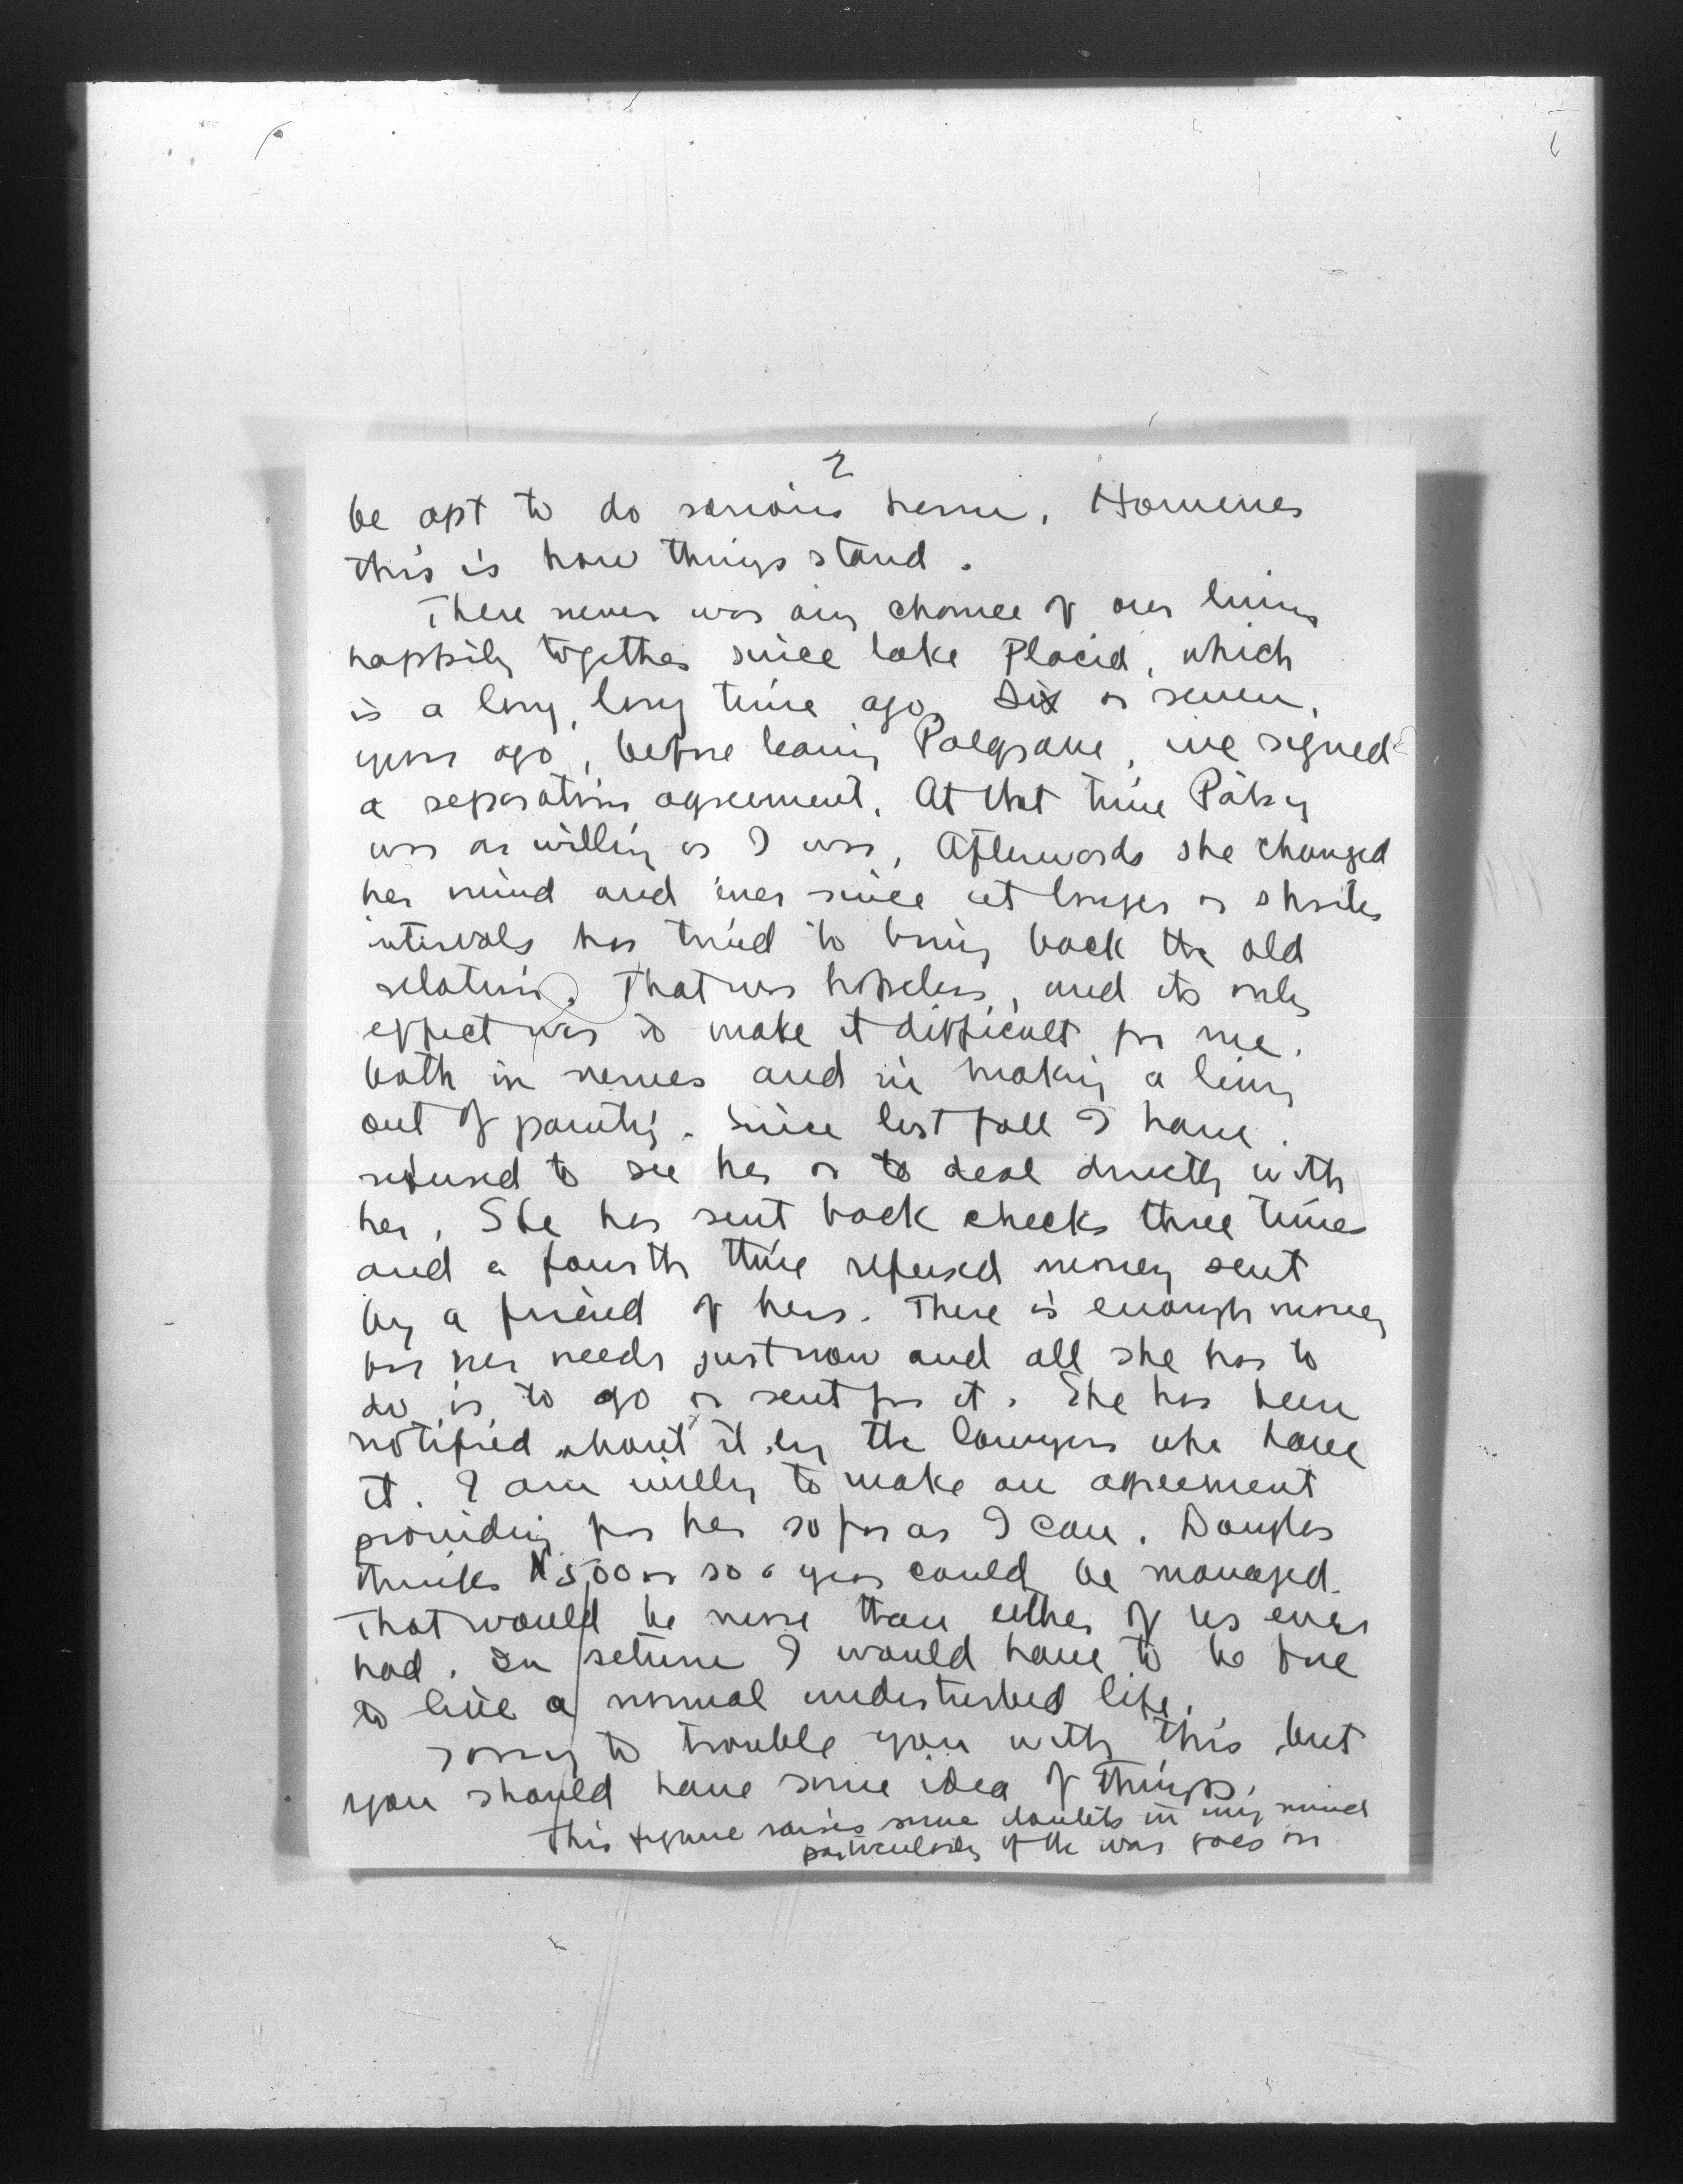 2
be apt to do serious harm. However
this is how things stand.
There never was any chance of our living
happily together since Lake Placid, which
is a long, long time ago. Six or seven
years ago, before leaving Palgrave, we signed
a separation agreement. At that time Patsy
was as willing as I was. Afterwards she changed
her mind and ever since at longer or shorter
intervals has tried to bring back the old
relation. That was hopeless, and its only
effect was to make it difficult for me.
both in nerves and in making a living
out of painting. Since last fall I have
refused to see her or to deal directly with
her. She has sent back checks three times
and a fourth time refused money sent
by a friend of hers. There is enough money
for her needs just now and all she has to
do is to go or sent for it. She has been
notified about it by the lawyers who have
it. I am willing to make an agreement
providing for her so far as I can. Douglas
thinks 500 or so a year could be managed.
That would be more than either of us ever
had. In return I would have to be free
to live a normal undisturbed life.
Sorry to trouble you with this but
you should have some idea of things.
This figure raises some doubts in my mind
particularly if the war goes on